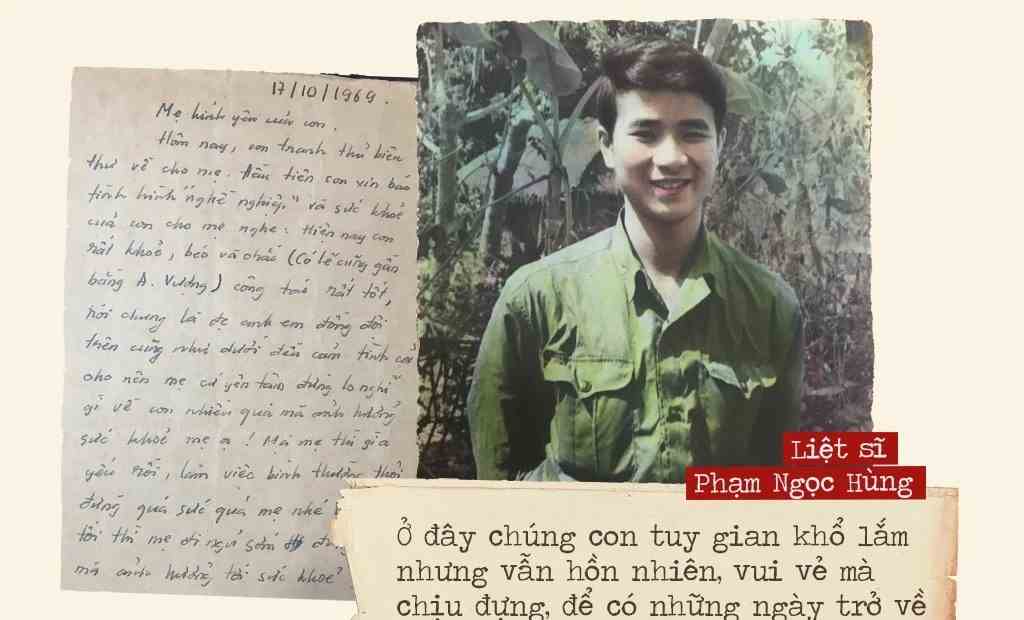 17/10/1969.
Mẹ kính yêu của con.
Hôm nay, con tranh thủ biên
thư về cho mẹ. Đầu tiên con xin báo
tình hình "nghề nghiệp" và sức khoẻ
của con cho mẹ nghe: Hiện nay con
rất khoẻ, béo và chắc (Có lẽ cũng gần
bằng A. Vượng) công tác rất tốt,
nói chung là được anh em đồng đội
trên cũng như dưới đều cảm tình cả
cho nên mẹ cứ yên tâm đừng lo nghĩ
gì về con nhiều quá mà ảnh hưởng
sức khoẻ mẹ ạ! Mà mẹ thì già
yếu rồi, làm việc bình thường thôi
đừng quá sức quá mẹ nhé
tối thì mẹ đi ngủ sớm
mà ảnh hưởng tới sức khoẻ
Liệt sĩ
Phạm Ngọc Hùng
Ở đây chúng con tuy gian khổ lắm
nhưng vẫn hồn nhiên, vui vẻ mà
chịu đựng, để có những ngày trở về